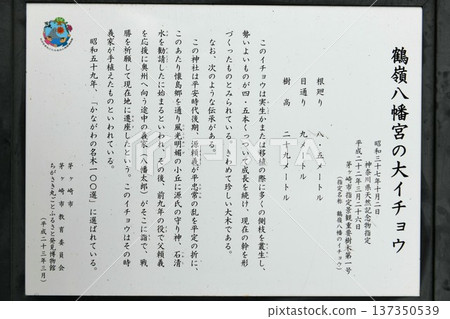 鶴嶺八幡宮の大イチョウ
昭和三十七年十月二日
神奈川県天然記念物指定
平成二十二年三月二十六日
茅ヶ崎市指定景観重要樹木第一号
（指定名称 鶴嶺八幡のイチョウ）
根廻り 八・五メートル
目通り 九メートル
樹高 二十九メートル
このイチョウは実生かまたは移植の際に多くの側枝を叢生し、
勢いよいものが四・五本くっついて成長を続け、現在の幹を形
づくったものとみられている。きわめて珍しい大木である。
なお、次のような伝承がある。
この神社は平安時代後期、源頼義が平忠常の乱を平定の折に、
このあたり懐島郷を通り風光明媚の小丘に源氏の守り神、石清
水を勧請したに始まるといわれ、その後、前九年の役で父頼義
を応援に奥州へ向う途中の義家（八幡太郎）がそこに詣で、戦
勝を祈願して現在地に遷座したという。このイチョウはその時
義家が手植えたものといわれている。
昭和五十九年、「かながわの名木一〇〇選」に選ばれている。
茅ヶ崎市
茅ヶ崎市教育委員会
ちがさき丸ごとふるさと発見博物館
（平成二十三年三月）
pixta.jp - 137350539